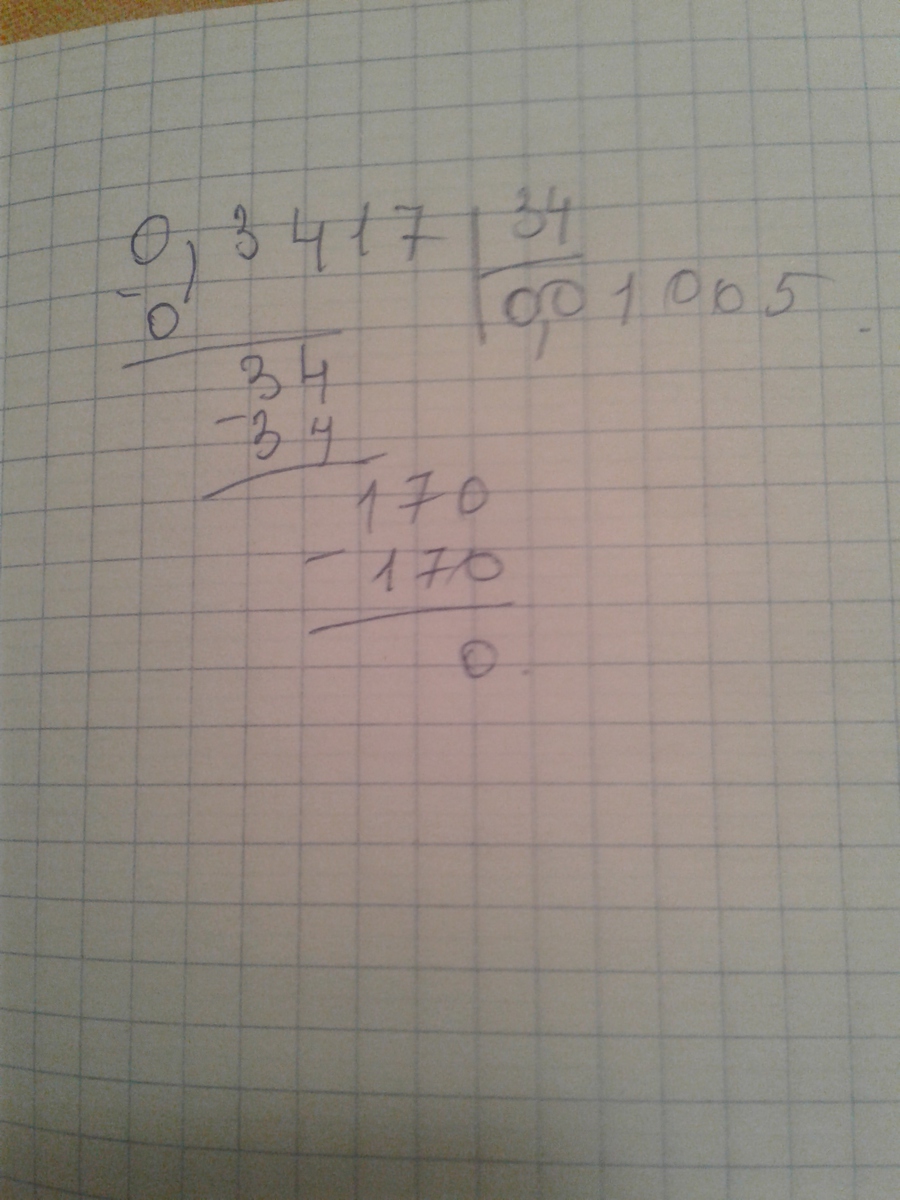 0,3417 34
-0 0,01005
34
-34
170
-170
0.